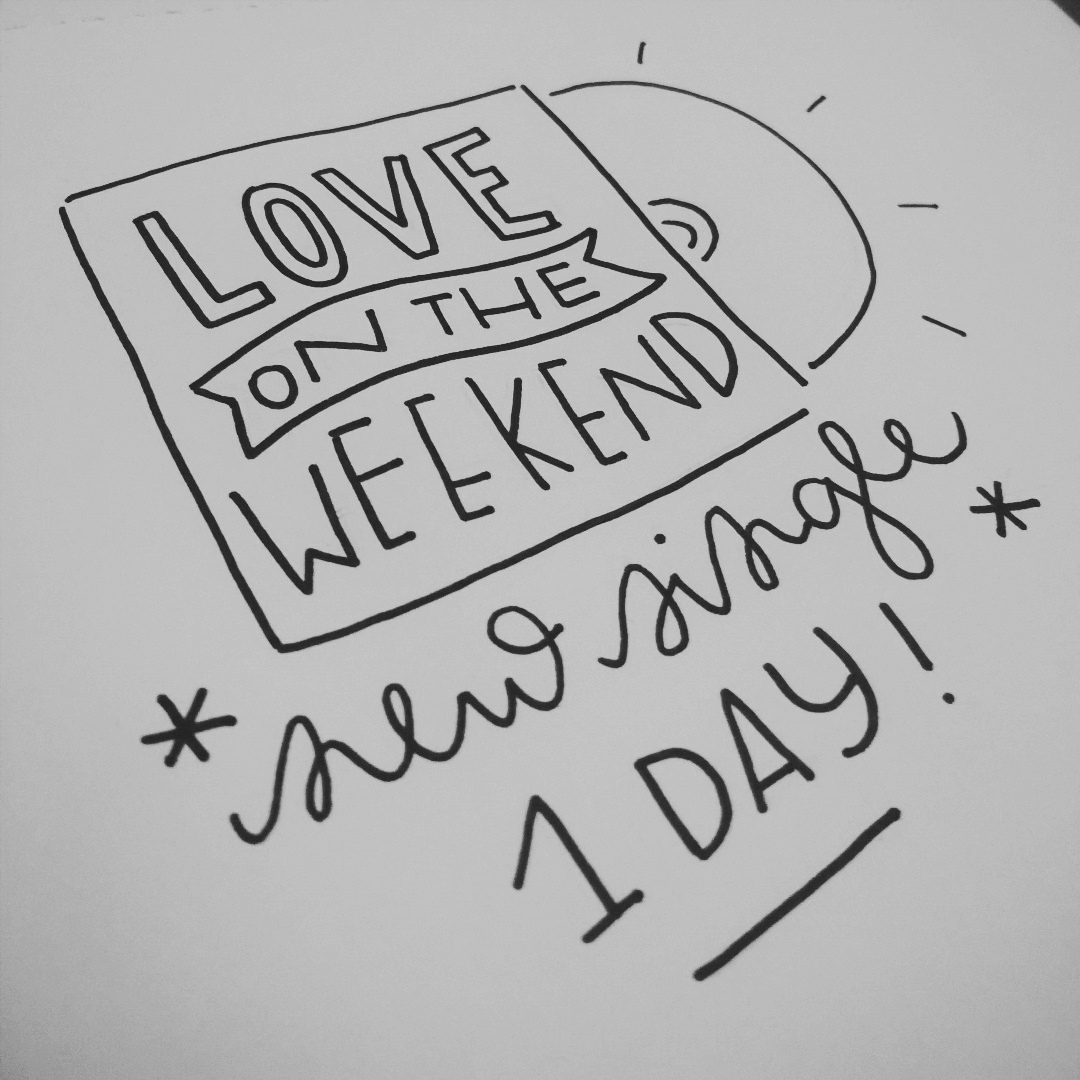 LOVE
ON THE
WEEKEND
*new single*
1 DAY!